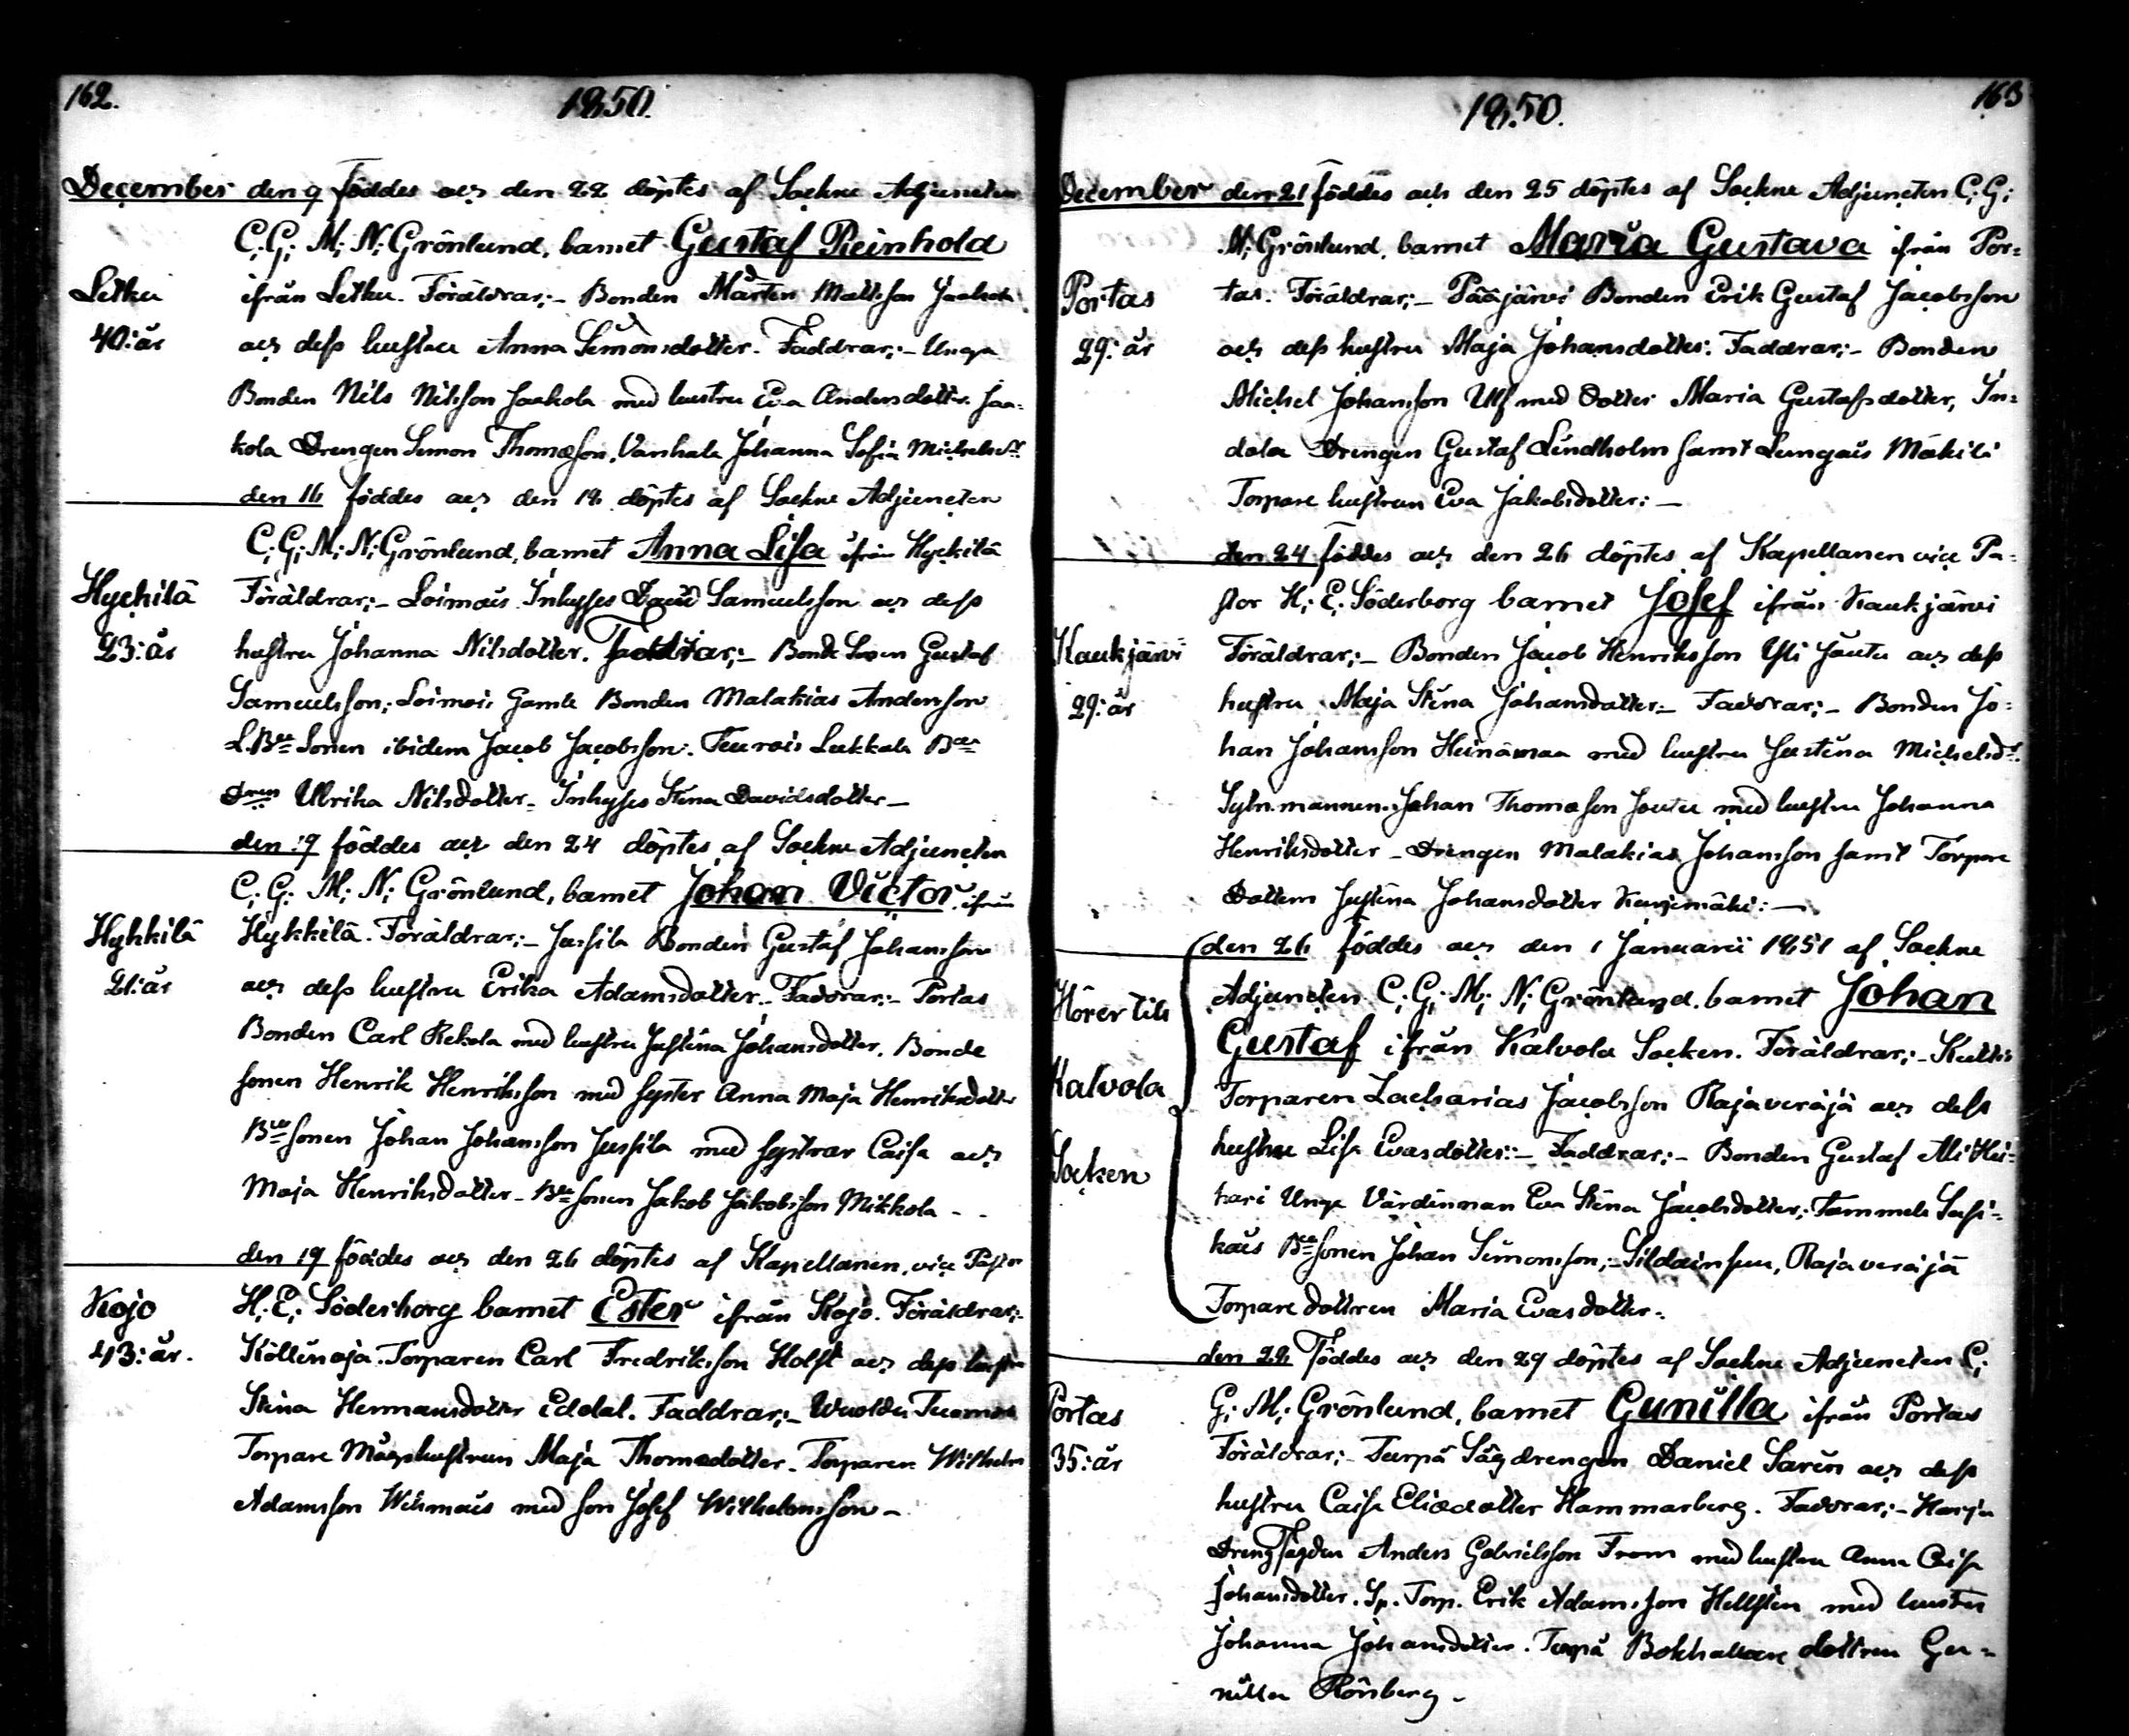 162.
1850.
December den 9 föddes och den 22 döptes af Sockne Adjuncten
C; G; M; N; Grönlund, barnet Gustaf Reinhold
Letku
ifrån Letku. Föräldrar;- Bonden Mårten Mattsson Jaakola
40: år
och dess hustru Anna Simonsdotter. Faddrar;- Unga
Bonden Nils Nilsson Jaakola med hustru Eva Andersdotter Jaa-
kola Drengen Simon Thomasson, Vanhala Johanna Sofia Michelsdr.
den 16 föddes och den 18 döptes af Sockne Adjuncten
C; G; M; N; Grönlund, barnet Anna Lisa ifrån Hyckilä
Hyckilä
Föräldrar;- Loimais Inhysses David Samuelsson och dess
23: år
hustru Johanna Nilsdotter. Faddrar;- Bonde Sonen Gustaf
Samuelsson; Loimais Gamle Bonden Malakias Andersson
L. Bde Sonen ibidem Jacob Jacobsson. Teurois Lukkala Bde
Dren Ulrika Nilsdotter- Inhysses Stina Davidsdotter-
den 19 föddes och den 24 döptes af Sockne Adjuncten
C; G; M; N; Grönlund, barnet Johan Victor ifrån
Hykkilä
Hykkilä. Föräldrar;- Jussila Bonden Gustaf Johansson
21: år
och dess hustru Erika Adamsdotter. Faddrar;- Portas
Bonden Carl Rekola med hustru Justina Johansdotter. Bonde
sonen Henrik Henriksson med syster Anna Maja Henriksdotter
Bde sonen Johan Johansson Jussila med systrar Caisa och
Maja Henriksdotter- Bde sonen Jakob Jakobsson Mikkola - -
den 19 föddes och den 26 döptes af Kapellanen, vice Pastor
Kojo
H; E; Söderborg barnet Ester ifrån Kojo. Föräldrar;-
43: år.
Köllinoja. Torparen Carl Fredriksson Holst och dess hustru
Stina Hermansdotter Eddal. Faddrar;- Tuomas
Torpare Mågshustrun Maja Thomedotter- Torparen Wilhelm
Adamsson Wihmais med son Josef Wilhelmsson-
1850.
163
December den 21 föddes och den 25 döptes af Sockne Adjuncten C; G;
M; Grönlund, barnet Maria Gustava ifrån Por-
Portas
tas. Föräldrar;- Pääjärvi Bonden Erik Gustaf Jacobsson
29: år
och dess hustru Maja Johansdotter. Faddrar;- Bonden
Michel Johansson Ulf med Dotter Maria Gustafsdotter, In-
dola Drengen Gustaf Lindholm samt Lungais Mäkilä
Torpare hustrun Eva Jakobsdotter:-
den 24 föddes och den 26 döptes af Kapellanen vice Pa-
stor H; E; Söderborg barnet Josef ifrån Kaukjärvi
Kaukjärvi
Föräldrar;- Bonden Jacob Henriksson Yli Jautu och dess
29: år
hustru Maja Stina Johansdotter- Faddrar;- Bonden Jo-
han Johansson Heinämaa med hustru Justina Michelsdr.
Sytn. mannen. Johan Thomasson Jautu med hustru Johanna
Henriksdotter- Drengen Malakias Johansson samt Torpare
Dottern Justina Johansdotter Kurjemäki:-
den 26 föddes och den 1 Januarii 1851 af Sockne
Hörer till
Adjuncten C; G; M; N; Grönlund. barnet Johan
Gustaf ifrån Kalvola Socken. Föräldrar;-
Kalvola
Torparen Zacharias Jacobsson Rajaveräjä och dess
Socken
hustru Lisa Evasdotter:- Faddrar;- Bonden Gustaf Ali Hei-
kari Unga Värdinnan Eva Stina Jacobsdotter; Tammela Susi-
kais Bde sonen Johan Simonsson;- Rajaveräjä
Torpare dottren Maria Evasdotter.
den 28 föddes och den 29 döptes af Sockne Adjuncten C;
G; M; Grönlund, barnet Gunilla ifrån Portas
Portas
Föräldrar;- Turpå Sågdrengen Daniel Sarin och dess
35: år
hustru Caisa Eliædotter Hammarberg. Faddrar;- Harju
Anders Gabrielsson From med hustru Anna Caisa
Johansdotter. Sp. Torp. Erik Adamsson Hellsten med hustru
Johanna Johansdotter. Turpå Bokhållare dottren Gu-
nilla Rönberg-